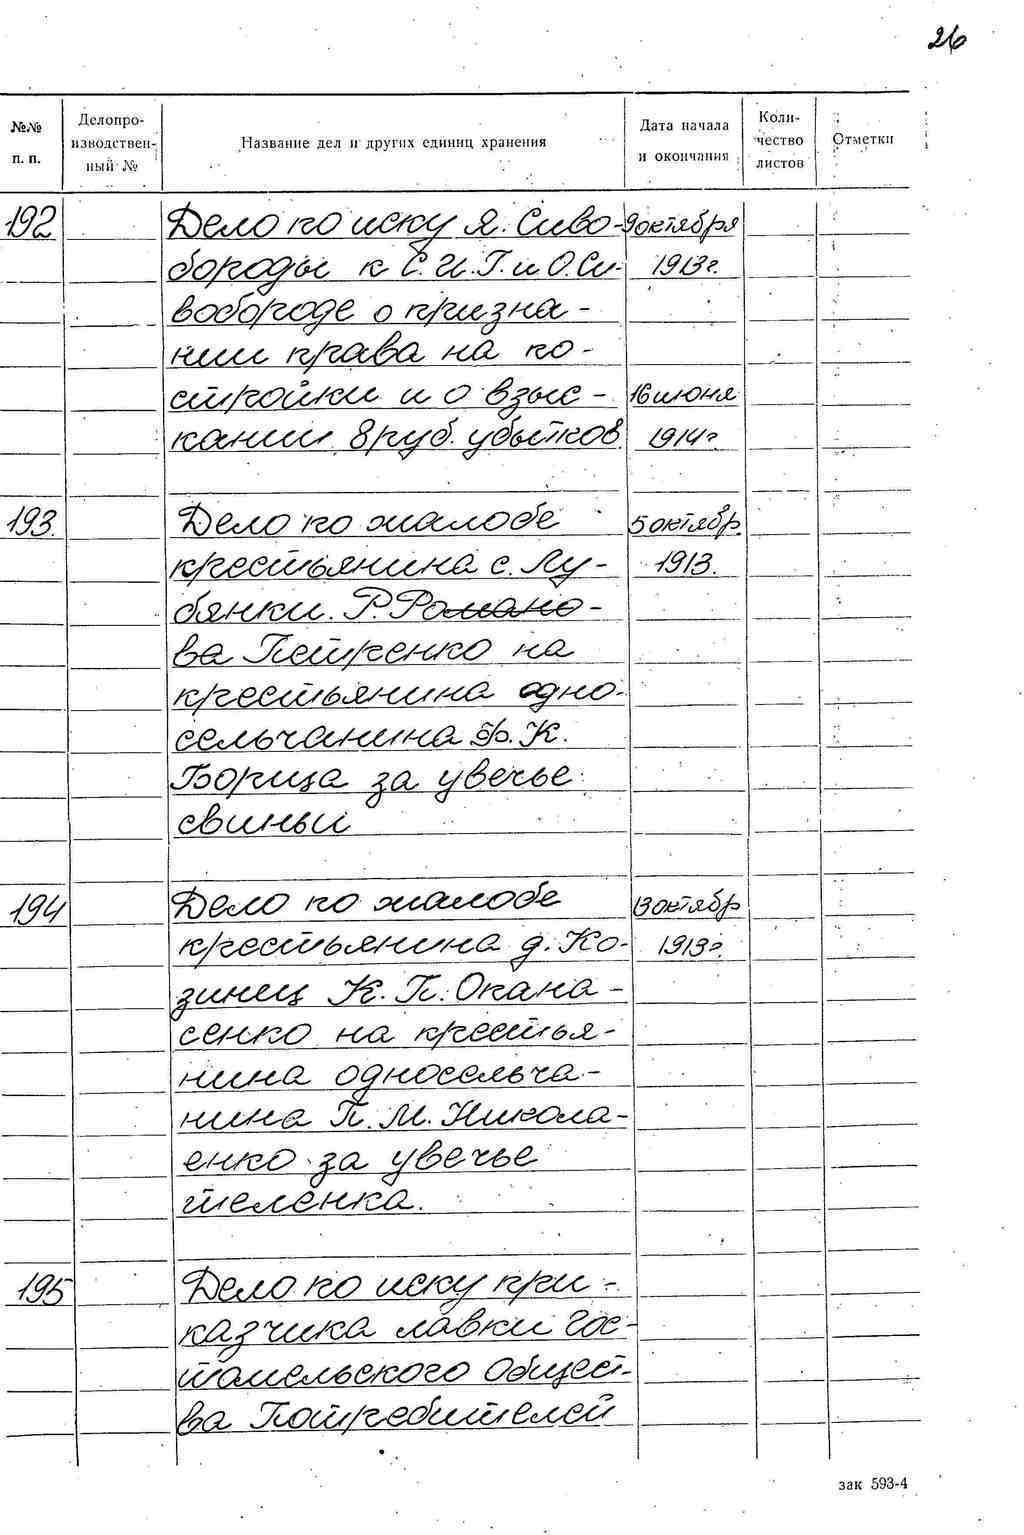 26
№№ п. п.
Делопро-
изводствен-
ный №
Название дел и других единиц хранения
Дата начала
и окончания
Коли-
чество
листов
Отметки
192 Дело по иску Я. Сиво- 9 октября
бороды к С. И. Г. и О. Си- 1913 г.
вобороде о призна-
нии права на по-
стройки и о взыс- 16 июня
кании 8 руб. убытков 1914 г
193. Дело по жалобе 5 октябр.
крестьянина с. Лу- 1913.
бянки. Р. Романо-
ва Петренко на
крестьянина одно-
сельчанина К.
Борица за увечье
свиньи
194 Дело по жалобе 13 октябр
крестьянина д. Ко- 1913 г.
зинец К. П. Опана-
сенко на крестья-
нина односельча-
нина П. М. Никола-
енко за увечье
теленка.
195 Дело по иску при-
казчика лавки Гос-
томельского Общест-
ва Потребителей
зак 593-4